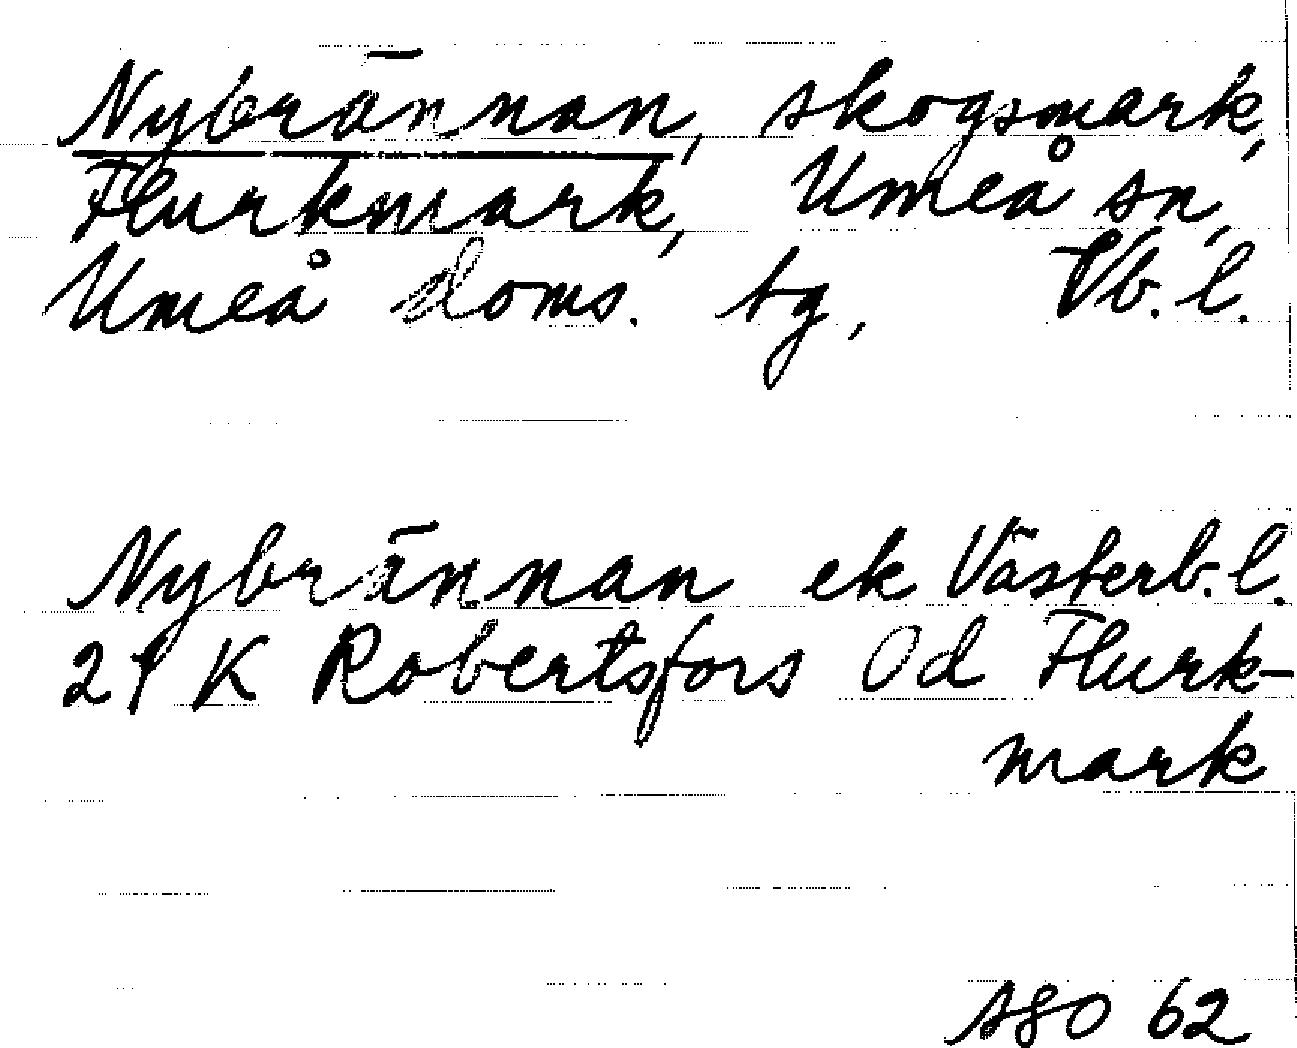 Nybrännan, skogsmark,
Flurkmark, Umeå sn,
Umeå doms. tg, Vb. l.
Nybrännan ek Västerb. l.
21 K Robertsfors Od Flurk-
mark
SGO 62